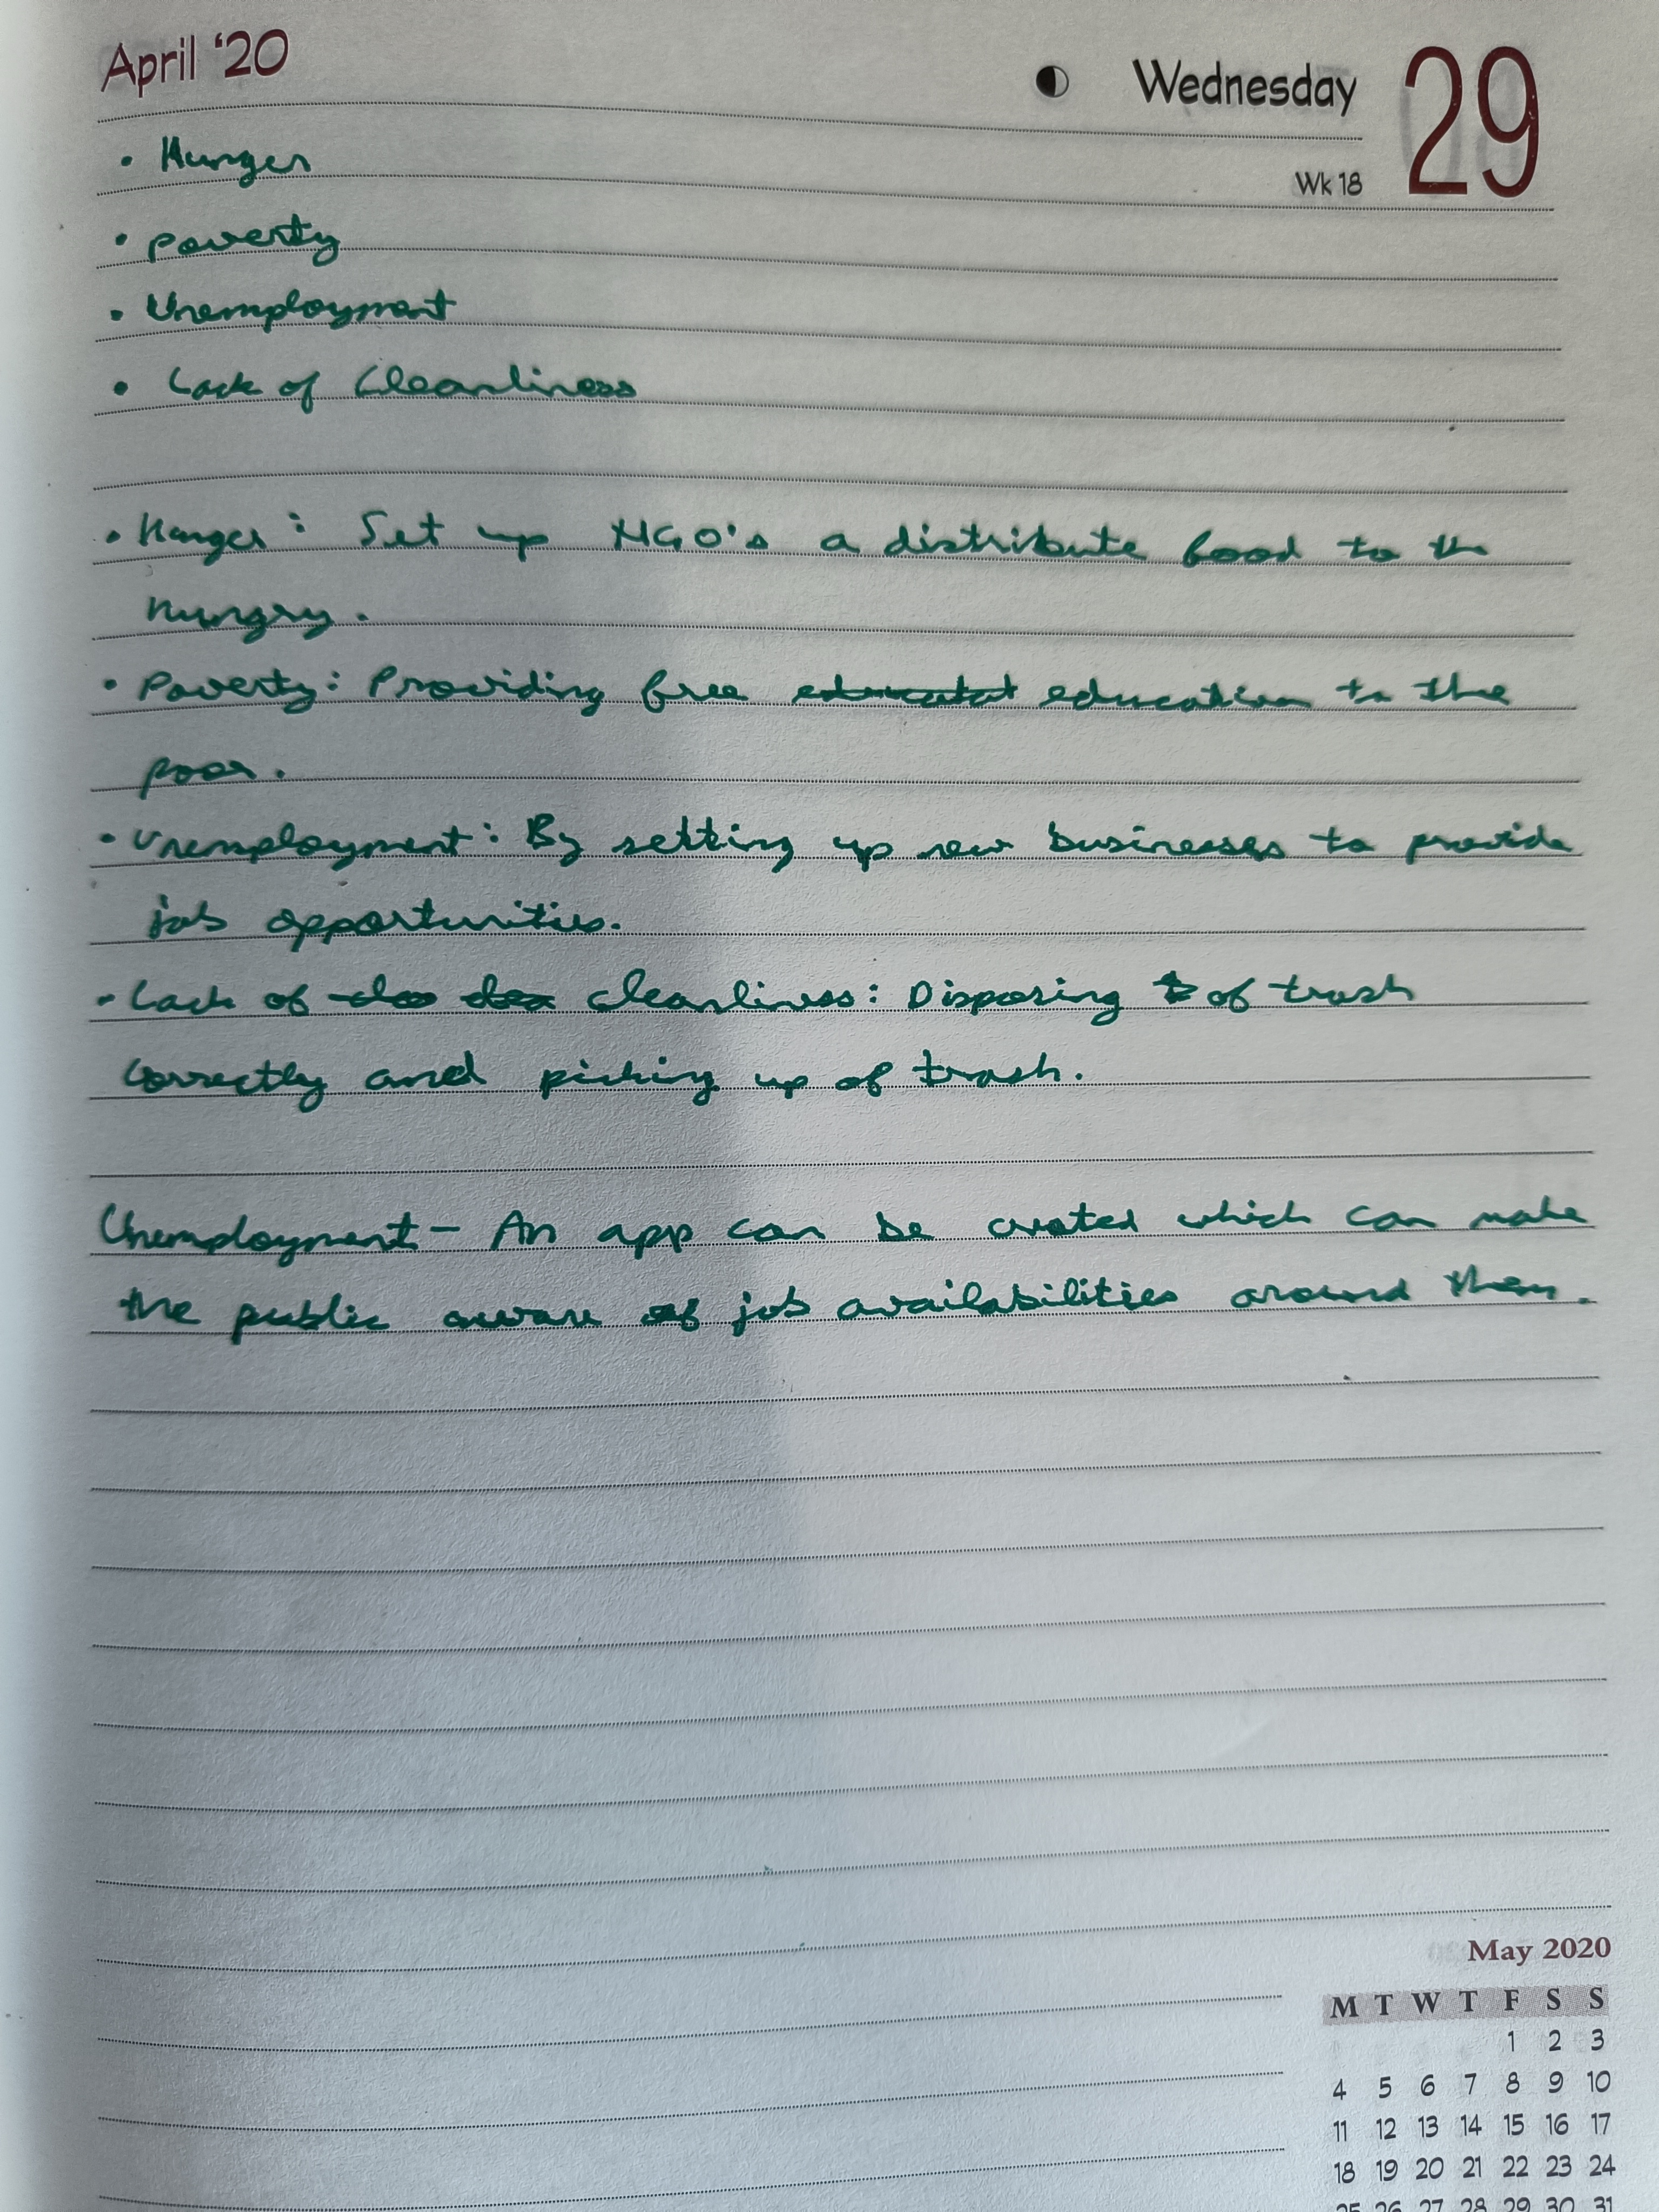 April '20
Wednesday 29
Wk 18
• Hunger
• poverty
• Unemployment
• Lack of Cleanliness
• Hunger: Set up NGO's a distribute food to the
hungry.
• Poverty: Providing free education to the
poor.
• Unemployment: By setting up new businesses to provide
job opportunities.
• Lack of cleanliness: Disposing of trash
correctly and picking up of trash.
Unemployment - An app can be created which can make
the public aware of job availabilities around them.
May 2020
M T W T F S S
1 2 3
4 5 6 7 8 9 10
11 12 13 14 15 16 17
18 19 20 21 22 23 24
25 26 27 28 29 30 31